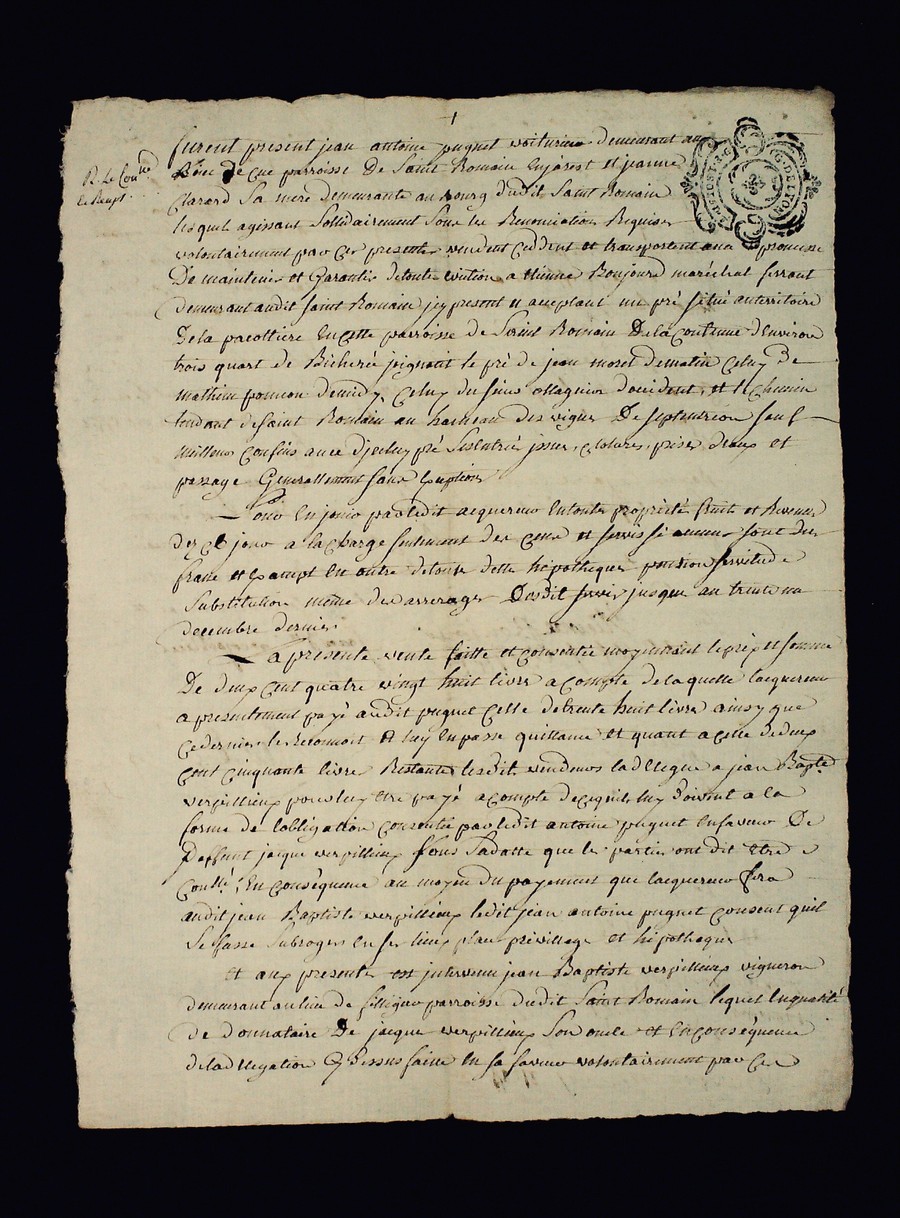 1
furent present jean antoine puguet voiturier demeurant au
de Cue parroisse de Saint Romain en jarest et jeanne
Clarard Sa mere demeurante au Bourg dudit Saint Romain
lesquels agissant Sollidairement Sous les Renonciation Requises
volontairement par ces presentes vendent ceddent et transportent avec promesse
De maintenir et Garantir de toute eviction a etienne Bonjour maréchal ferrant
demeurant audit Saint Romain icy present et acceptant un pré situé au territoire
De la pacottiere en cette parroisse de Saint Romain De la Contenue d'Environ
trois quart de Bicherée joignant le pré de jean moret de matin Celuy de
mathieu poncon de midy, Celuy du sieur ollagnier d'occident, et le chemin
tendant de Saint Romain au hameau des vignes De septentrion sauf
meilleurs Confins avec d'jceluy pré ses entrées jssues, clotures, prises d'eaux et
passage Generallement sans Exceptions
Pour en jouir par ledit acquereur en toute propriété fruits et Revenus
dez ce jour a la charge seulement des cens et servis si aucuns sont dus
franc et exempt en outre de toute dette hypotheques pension servitude
Substitution même des arrerages Desdits servis jusque au trente un
decembre dernier
La presente vente faitte et consentie moyennant le prix et somme
De deux cent quatre vingt huit livres a compte de laquelle lacquereur
a presentement payé audit puguet celle de trente huit livres ainsy que
ce dernier le Reconnoit et luy en passe quittance et quant a celle de deux
cent cinquante livres Restante lesdits vendeurs la delegue a jean Baptte
verpillieux pour luy etre payé a compte de ce quils luy doivent a la
forme de l'obligation consentie par ledit antoine puguet en faveur De
Deffunt jacque verpillieux sous Sa datte que les parties ont dit etre
Conllé. En conséquence au moyen du payement que lacquereur fera
audit jean Baptiste verpillieux ledit jean antoine puguet consent quil
Se fasse Subroger en ses lieux place privillege et hipotheque
et aux presentes est jntervenu jean Baptiste verpillieux vigneron
demeurant au lieu de parroisse dudit Saint Romain lequel En qualité
de donnataire De jacque verpillieux Son oncle et En conséquence
de la dellegation Cy dessus faitte en sa faveur volontairement par ces